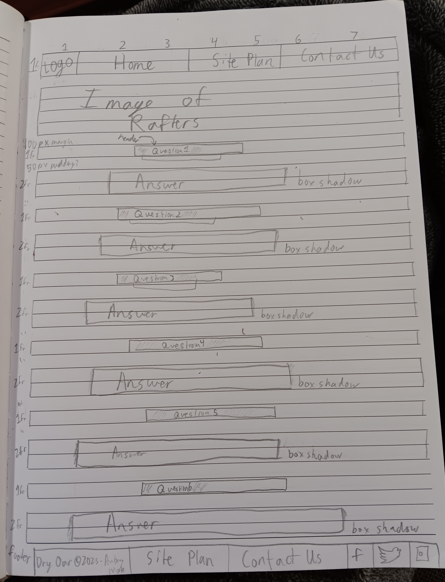 1 2 3 4 5 6 7
1fr Logo Home Site Plan Contact Us
Image of
Rafters
header
1fr Question 1
2fr Answer box shadow
1fr Question 2
2fr Answer box shadow
1fr Question 3
2fr Answer box shadow
1fr Question 4
2fr Answer box shadow
1fr Question 5
2fr Answer box shadow
1fr Question 6
2fr Answer box shadow
footer Dry Oar © 2021 Site Plan Contact Us f